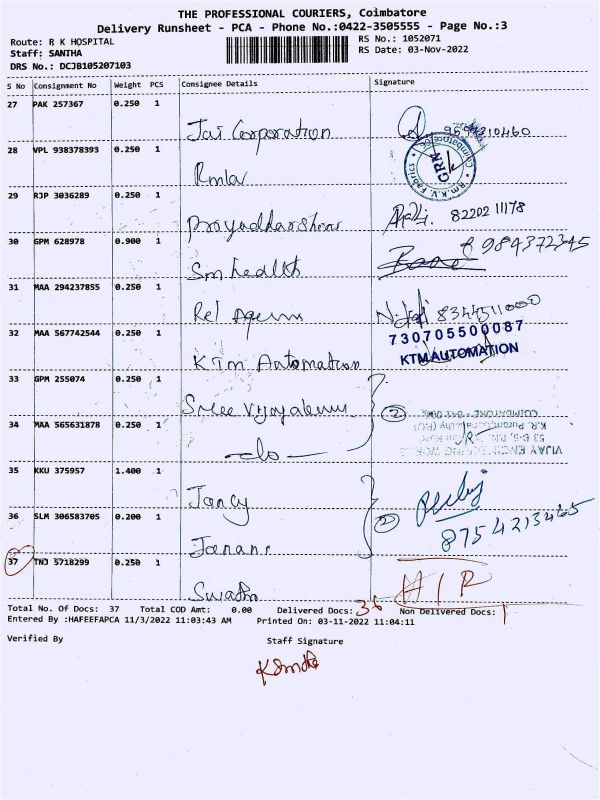 THE PROFESSIONAL COURIERS, Coimbatore
Delivery Runsheet - PCA - Phone No.:0422-3505555 - Page No.:3
Route: R K HOSPITAL
RS No.: 1052071
Staff: SANTHA
RS Date: 03-Nov-2022
DRS No.: DCJB105207103
S No Consignment No Weight PCS Consignee Details Signature
27 PAK 257367 0.250 1
Jai Corporation
28 VPL 938378393 0.250 1
Rmkv
29 RJP 3036289 0.250 1
82202 11178
30 GPM 628978 0.900 1
Sm health 984372345
31 MAA 294237855 0.250 1
Rel
32 MAA 567742544 0.250 1 730705500087
KTM Automation KTM AUTOMATION
33 GPM 255074 0.250 1
Sree
34 MAA 565631878 0.250 1
-do-
35 KKU 375957 1.400 1
Jancy
36 SLM 306583705 0.200 1 8754213465
Janani
37 TNJ 5718299 0.250 1
Swathi
Total No. Of Docs: 37 Total COD Amt: 0.00 Delivered Docs: 36 Non Delivered Docs: 1
Entered By :HAFEEFAPCA 11/3/2022 11:03:43 AM Printed On: 03-11-2022 11:04:11
Verified By Staff Signature